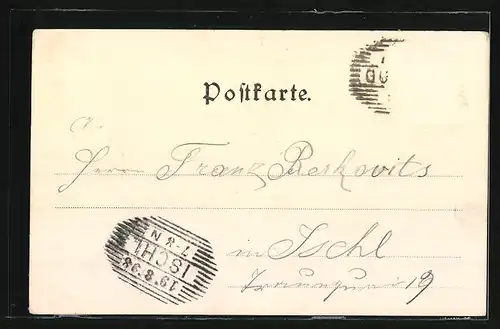 Postkarte.
a.
Herrn Franz Reskovits
in Ischl
19
ISCHL
19.8.98
7-8 N